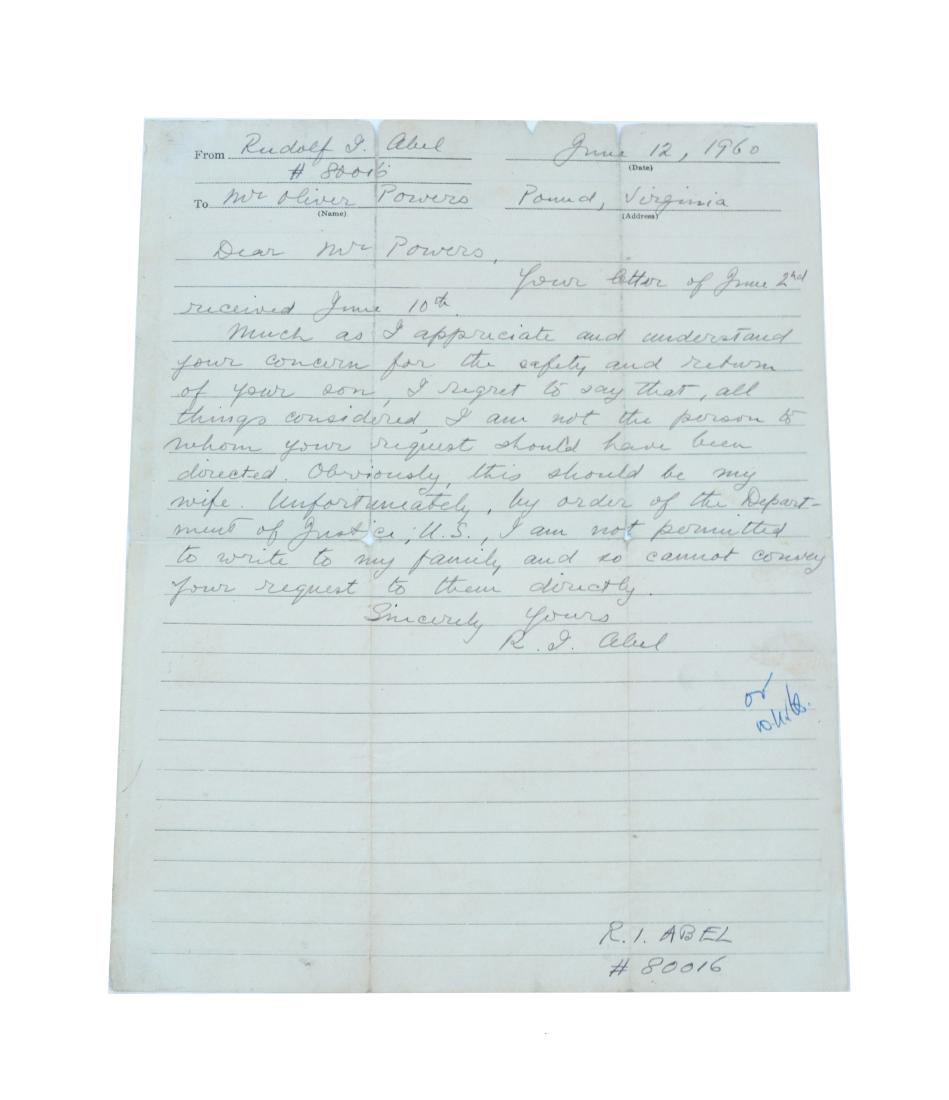 From Rudolf I. Abel June 12, 1960
(Date)
# 80016
To Mr Oliver Powers Pound, Virginia
(Name) (Address)
Dear Mr Powers,
Your letter of June 2nd
received June 10th.
Much as I appreciate and understand
your concern for the safety and return
of your son, I regret to say that, all
things considered, I am not the person to
whom your request should have been
directed. Obviously, this should be my
wife. Unfortuniately, by order of the Depart-
ment of Justice, U.S., I am not permitted
to write to my family and so cannot convey
your request to them directly.
Sincerely Yours
R. I. Abel
or
R.I. ABEL
# 80016